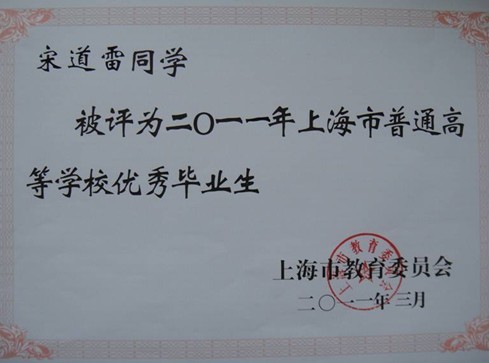 宋道雷同学
被评为二〇一一年上海市普通高
等学校优秀毕业生
上海市教育委员会
二〇一一年三月